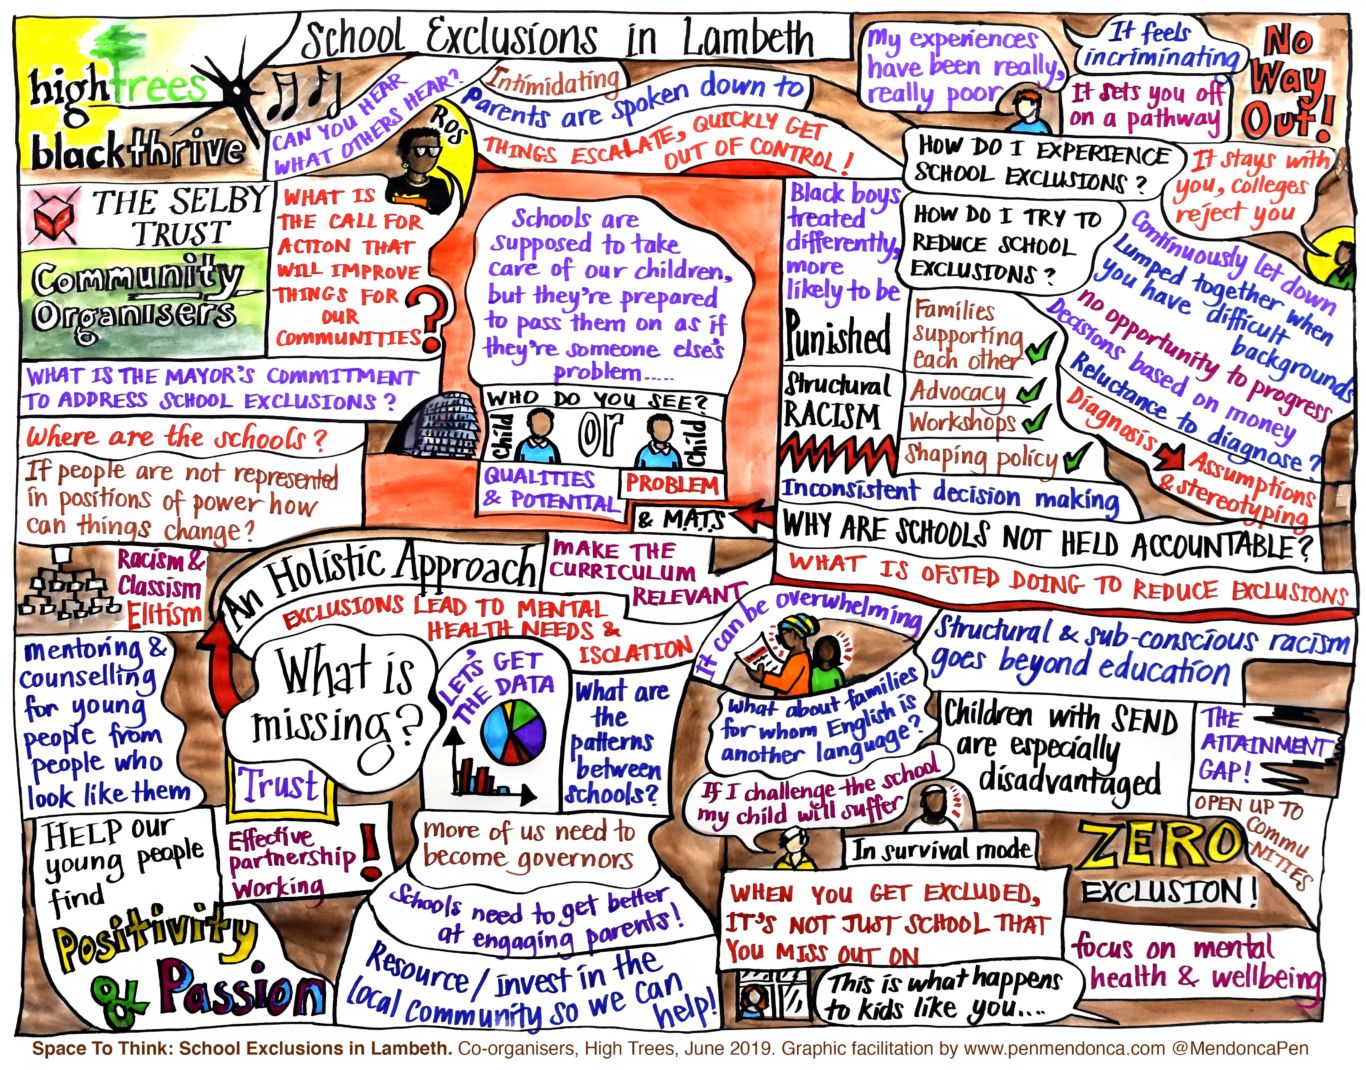 School Exclusions in Lambeth
high trees
blackthrive
THE SELBY
TRUST
Community
Organisers
CAN YOU HEAR
WHAT OTHERS HEAR?
Ros
Intimidating
parents are spoken down to
THINGS ESCALATE, QUICKLY GET
OUT OF CONTROL!
WHAT IS
THE CALL FOR
ACTION THAT
WILL IMPROVE
THINGS FOR
OUR
COMMUNITIES
?
WHAT IS THE MAYOR'S COMMITMENT
TO ADDRESS SCHOOL EXCLUSIONS?
Where are the schools?
If people are not represented
in positions of power how
can things change?
Schools are
supposed to take
care of our children,
but they're prepared
to pass them on as if
they're someone else's
problem.....
WHO DO YOU SEE?
Child
or
Child
QUALITIES
& POTENTIAL
PROBLEM
& MATS
My experiences
have been really,
really poor
It feels
incriminating
It sets you off
on a pathway
No
Way
Out!
HOW DO I EXPERIENCE
SCHOOL EXCLUSIONS?
It stays with
you, colleges
reject you
HOW DO I TRY TO
REDUCE SCHOOL
EXCLUSIONS?
Black boys
treated
differently,
more
likely to be
Punished
Structural
RACISM
Families
supporting
each other
Advocacy
Workshops
Shaping policy
Continuously let down
Lumped together when
you have difficult
backgrounds
no opportunity to progress
Decisions based on money
Reluctance to diagnose?
Diagnosis
Assumptions
& stereotyping
Inconsistent decision making
WHY ARE SCHOOLS NOT HELD ACCOUNTABLE?
WHAT IS OFSTED DOING TO REDUCE EXCLUSIONS
Racism &
Classism
Elitism
An Holistic Approach
MAKE THE
CURRICULUM
RELEVANT
EXCLUSIONS LEAD TO MENTAL
HEALTH NEEDS &
ISOLATION
mentoring &
counselling
for young
people from
people who
look like them
What is
missing?
Trust
Effective
partnership
working
!
LET'S GET
THE DATA
What are
the
patterns
between
schools?
HELP our
young people
find
Positivity
& Passion
more of us need to
become governors
Schools need to get better
at engaging parents!
Resource/invest in the
local community so we can
help!
It can be overwhelming
What about families
for whom English is
another language?
If I challenge the school
my child will suffer
In survival mode
Structural & sub-conscious racism
goes beyond education
Children with SEND
are especially
disadvantaged
THE
ATTAINMENT
GAP!
OPEN UP TO
COMMU
NITIES
ZERO
EXCLUSION!
WHEN YOU GET EXCLUDED,
IT'S NOT JUST SCHOOL THAT
YOU MISS OUT ON
This is what happens
to kids like you....
focus on mental
health & wellbeing
Space To Think: School Exclusions in Lambeth. Co-organisers, High Trees, June 2019. Graphic facilitation by www.penmendonca.com @MendoncaPen